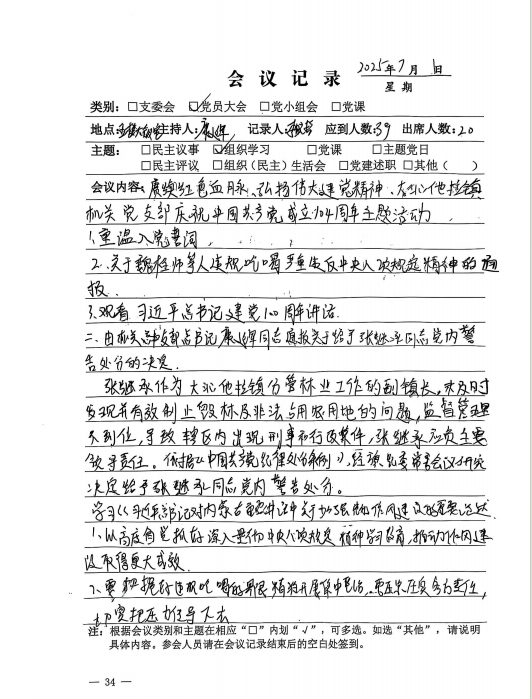 2025年7月1日
会 议 记 录 星 期
类别:□支委会 ☑党员大会 □党小组会 □党课
地点: 主持人: 记录人: 应到人数:39 出席人数:20
主题: □民主议事 ☑组织学习 □党课 □主题党日
□民主评议 □组织(民主)生活会 □党建述职 □其他( )
会议内容:赓续红色血脉、弘扬伟大建党精神、大沁他拉镇
机关党支部庆祝中国共产党成立104周年主题活动
1.重温入党誓词
2.关于魏程师等人违规吃喝严重违反中央八项规定精神的通
报.
3.观看习近平总书记建党100周年讲话.
二、由机关总支部总书记 同志宣报关于给予张继承同志党内警
告处分的决定.
张继承作为大沁他拉镇分管林业工作的副镇长,未及时
发现并有效制止毁林及非法占用农用地的问题,监督管理
不到位,导致辖区内出现刑事和行政案件,张继承应负主要
领导责任。依据《中国共产党纪律处分条例》,经镇党委常会议研究
决定给予张继承同志党内警告处分。
学习《习近平总书记对内蒙古 关于加强 作风建设的重要论述
1.以高度自觉抓好深入贯彻中央八项规定精神学习教育,推动作风建
设取得更大成效.
2.要 违规吃喝 精准开展集中 , 压实 责任,
切实把压力传导下去
注:根据会议类别和主题在相应“□”内划“√”,可多选。如选“其他”,请说明
具体内容。参会人员请在会议记录结束后的空白处签到。
— 34 —